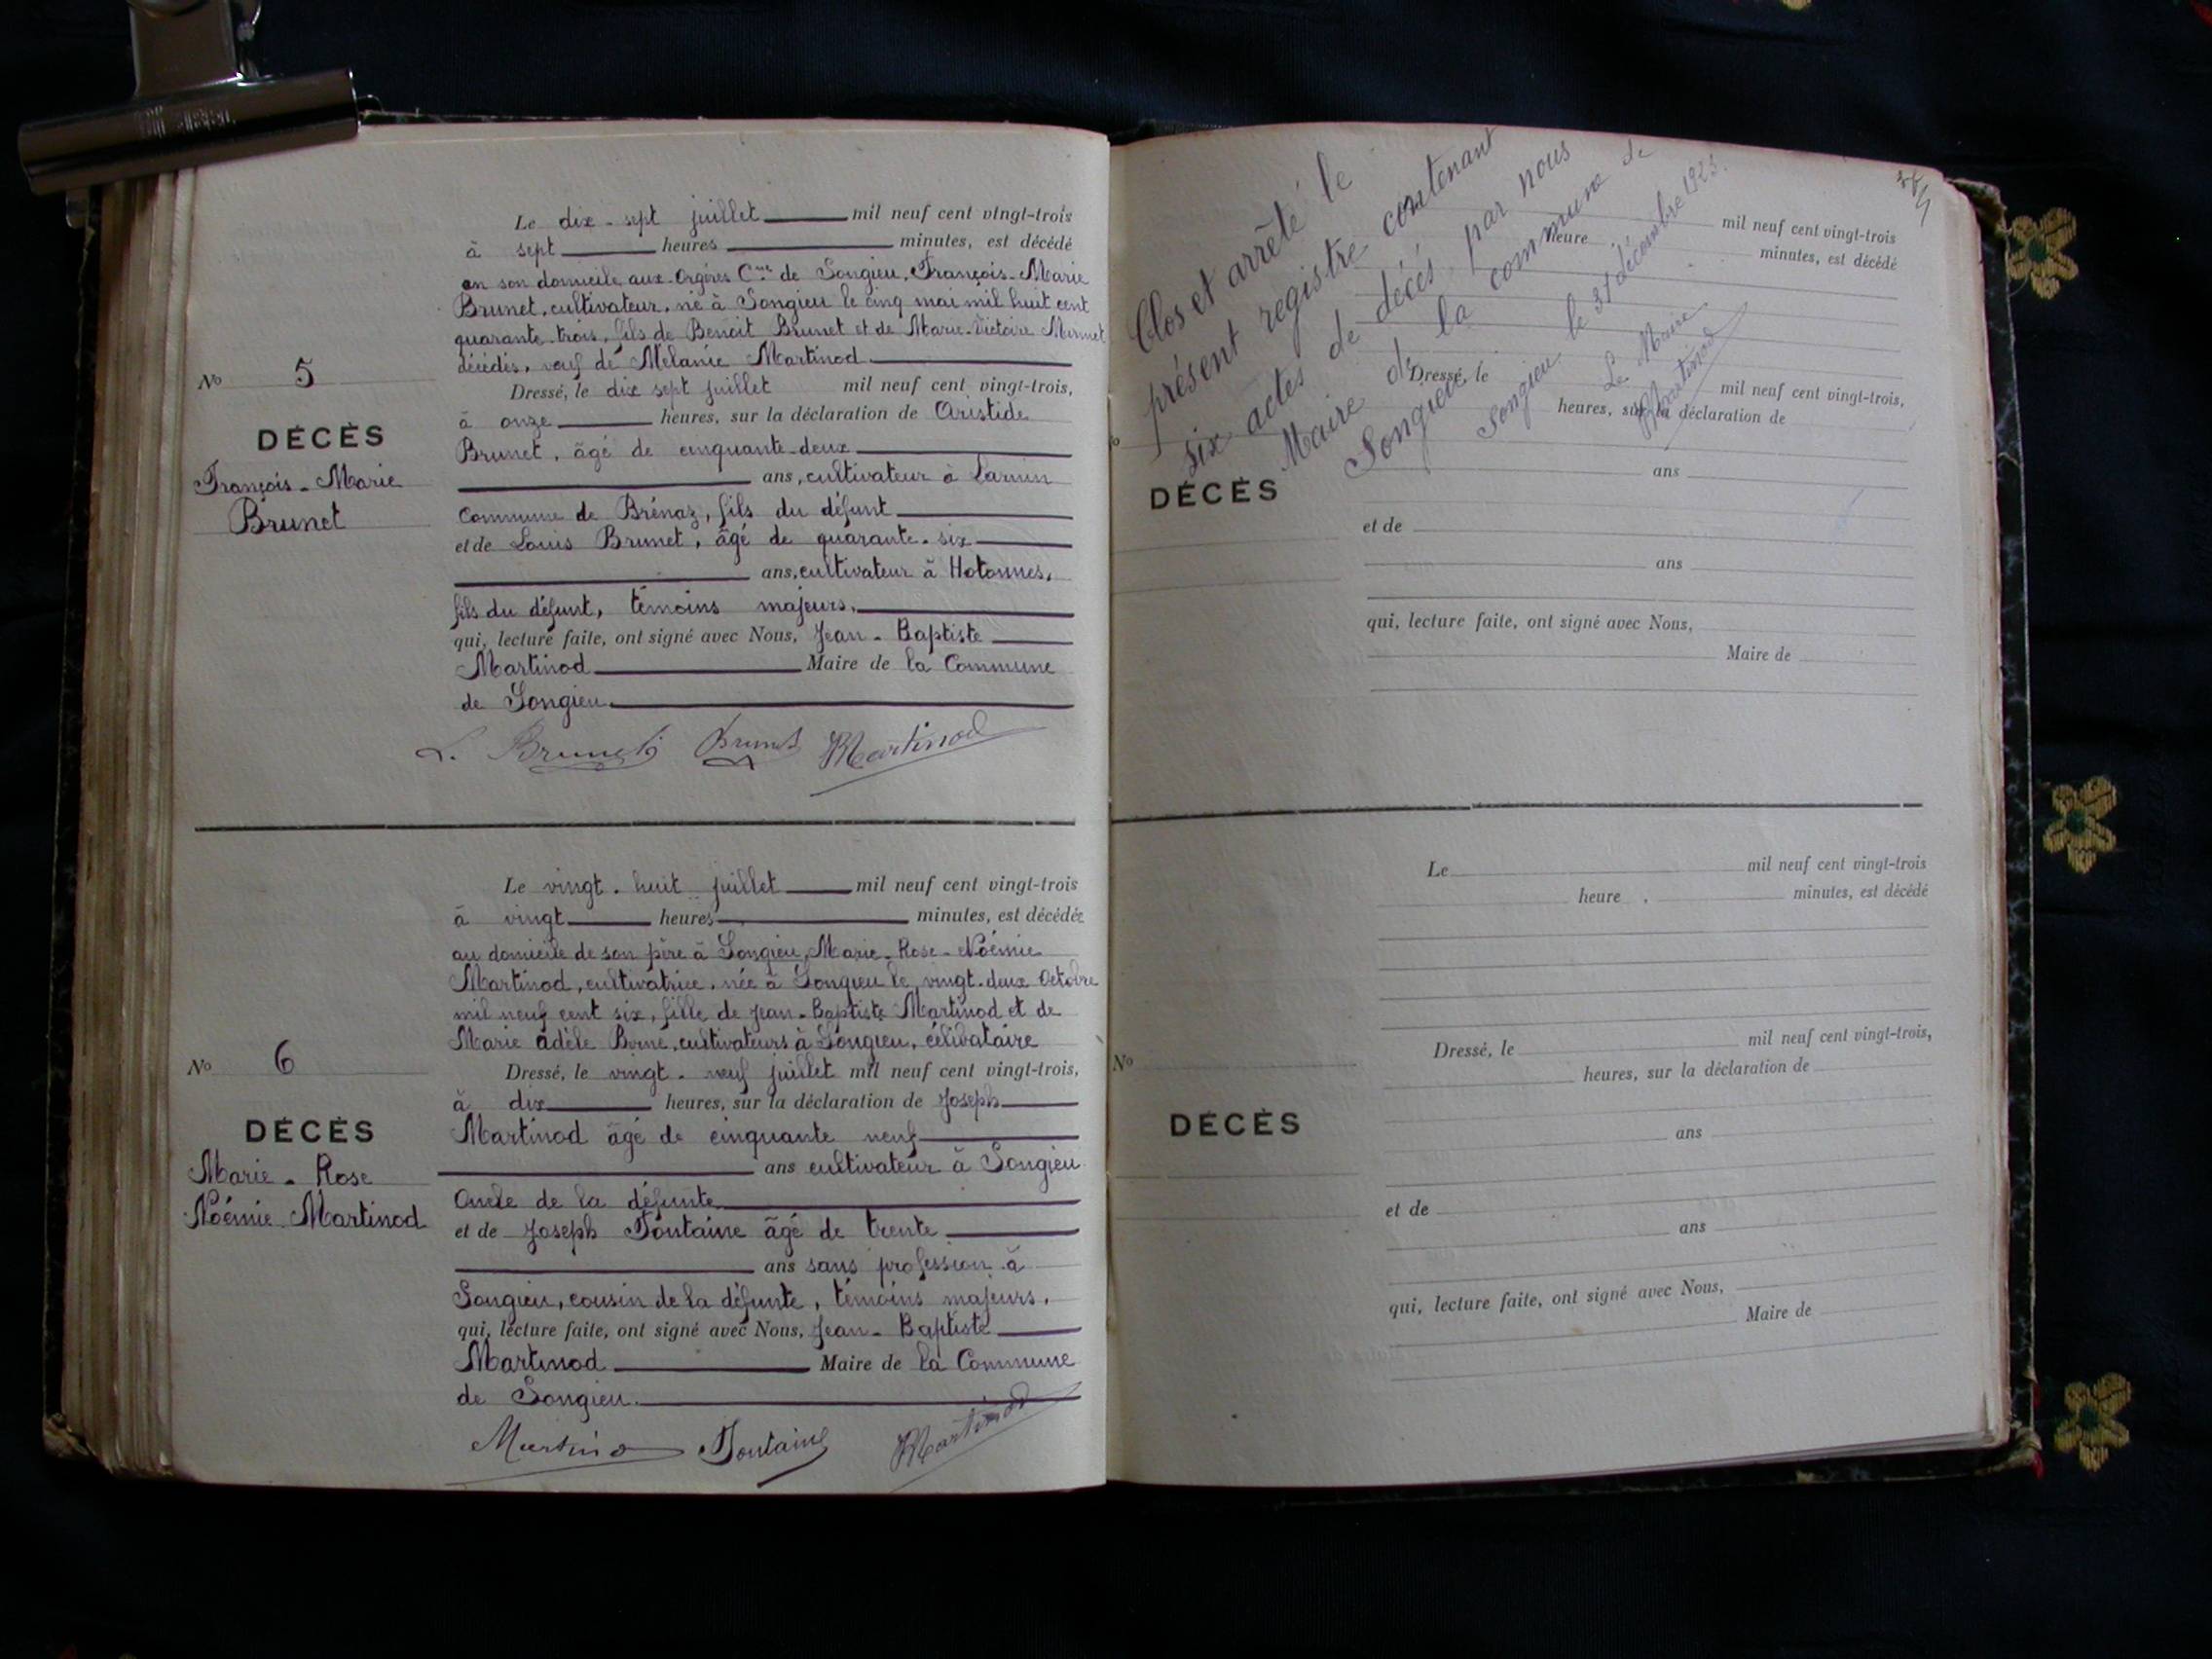 Le dix-sept juillet mil neuf cent vingt-trois
à sept heures minutes, est décédé
en son domicile aux Orgères Cne de Songieu, François-Marie
Brunet, cultivateur, né à Songieu le cinq mai mil huit cent
quarante-trois, fils de Benoit Brunet et de Marie-Victoire
décédés, veuf de Mélanie Martinod
Dressé, le dix sept juillet mil neuf cent vingt-trois,
à onze heures, sur la déclaration de Aristide
Brunet, âgé de cinquante-deux
ans, cultivateur à
Commune de Brénaz, fils du défunt
et de Louis Brunet, âgé de quarante-six
ans, cultivateur à Hotonnes,
fils du défunt, témoins majeurs,
qui, lecture faite, ont signé avec Nous, Jean-Baptiste
Martinod Maire de la Commune
de Songieu
L. Brunet Brunet Martinod
No 5
DÉCÈS
François-Marie
Brunet
Le vingt-huit juillet mil neuf cent vingt-trois
à vingt heures minutes, est décédée
au domicile de son père à Songieu, Marie-Rose-Noémie
Martinod, cultivatrice, née à Songieu le vingt-deux Octobre
mil neuf cent six, fille de Jean-Baptiste Martinod et de
Marie Adèle, cultivateurs à Songieu, célibataire
Dressé, le vingt-neuf juillet mil neuf cent vingt-trois,
à dix heures, sur la déclaration de Joseph
Martinod âgé de cinquante neuf
ans cultivateur à Songieu
Oncle de la défunte
et de Joseph Fontaine âgé de trente
ans sans profession à
Songieu, cousin de la défunte, témoins majeurs,
qui, lecture faite, ont signé avec Nous, Jean-Baptiste
Martinod Maire de la Commune
de Songieu
Martinod Fontaine Martinod
No 6
DÉCÈS
Marie-Rose
Noémie Martinod
Clos et arrêté le
présent registre contenant
six actes de décés, par nous
Maire de la commune de
Songieu
Songieu le 31 décembre 1923.
Le Maire
Martinod
mil neuf cent vingt-trois
heure minutes, est décédé
Dressé, le mil neuf cent vingt-trois,
heures, sur la déclaration de
DÉCÈS
ans
et de
ans
qui, lecture faite, ont signé avec Nous,
Maire de
Le mil neuf cent vingt-trois
heure minutes, est décédé
Dressé, le mil neuf cent vingt-trois,
No
heures, sur la déclaration de
DÉCÈS
ans
et de
ans
qui, lecture faite, ont signé avec Nous,
Maire de